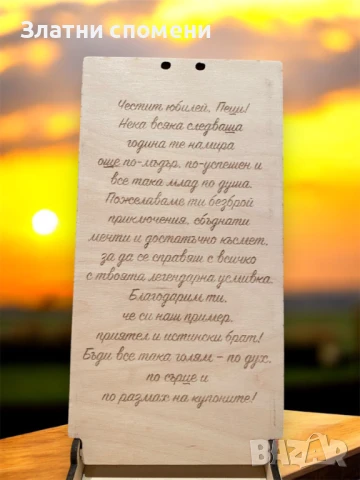 Златни спомени
Честит юбилей, Пеци!
Нека всяка следваща
година те намира
още по-мъдър, по-успешен и
все така млад по душа.
Пожелаваме ти безброй
приключения, сбъднати
мечти и достатъчно късмет,
за да се справяш с всичко
с твоята легендарна усмивка.
Благодарим ти,
че си наш пример,
приятел и истински брат!
Бъди все така голям – по дух,
по сърце и
по размах на купоните!
BAZAR